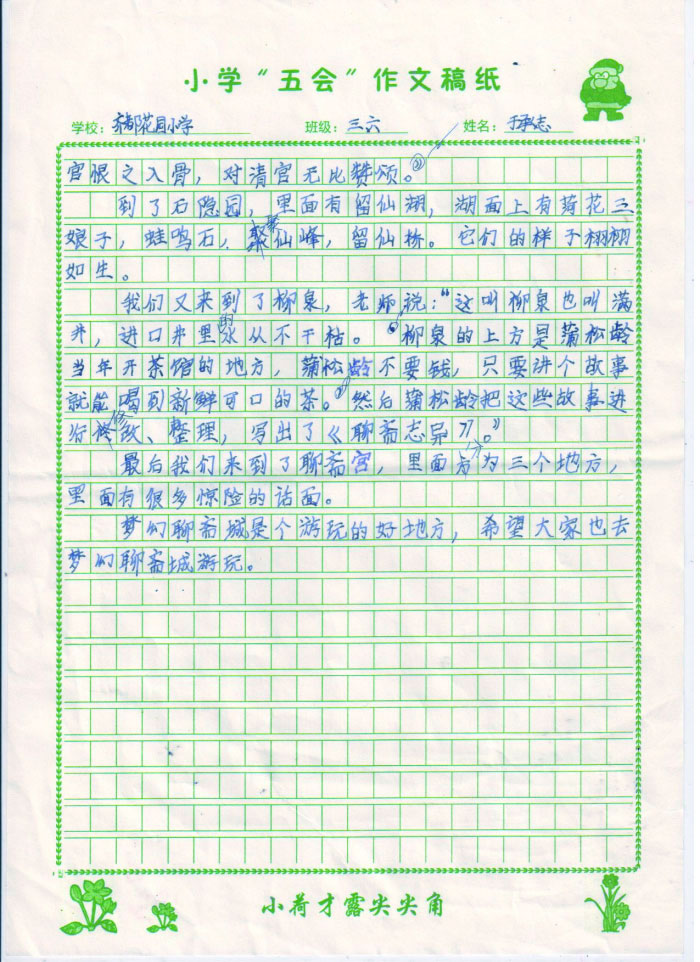 小学“五会”作文稿纸
学校：齐都花园小学 班级：三六 姓名：于承志
官恨之入骨，对清官无比赞颂。
到了石隐园，里面有留仙湖，湖面上有菊花三
娘子，蛙鸣石，聚仙峰，留仙桥。它们的样子栩栩
如生。
我们又来到了柳泉，老师说：“这叫柳泉也叫满
井，进口井里的水从不干枯。柳泉的上方是蒲松龄
当年开茶馆的地方，蒲松龄不要钱，只要讲个故事
就能喝到新鲜可口的茶。然后蒲松龄把这些故事进
行修改、整理，写出了《聊斋志异》。”
最后我们来到了聊斋宫，里面分为三个地方，
里面有很多惊险的话面。
梦幻聊斋城是个游玩的好地方，希望大家也去
梦幻聊斋城游玩。
小荷才露尖尖角